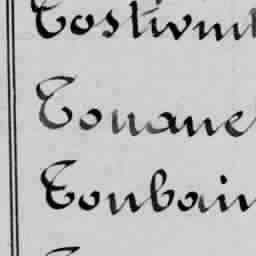 Tostivint
Touanel
Toubain